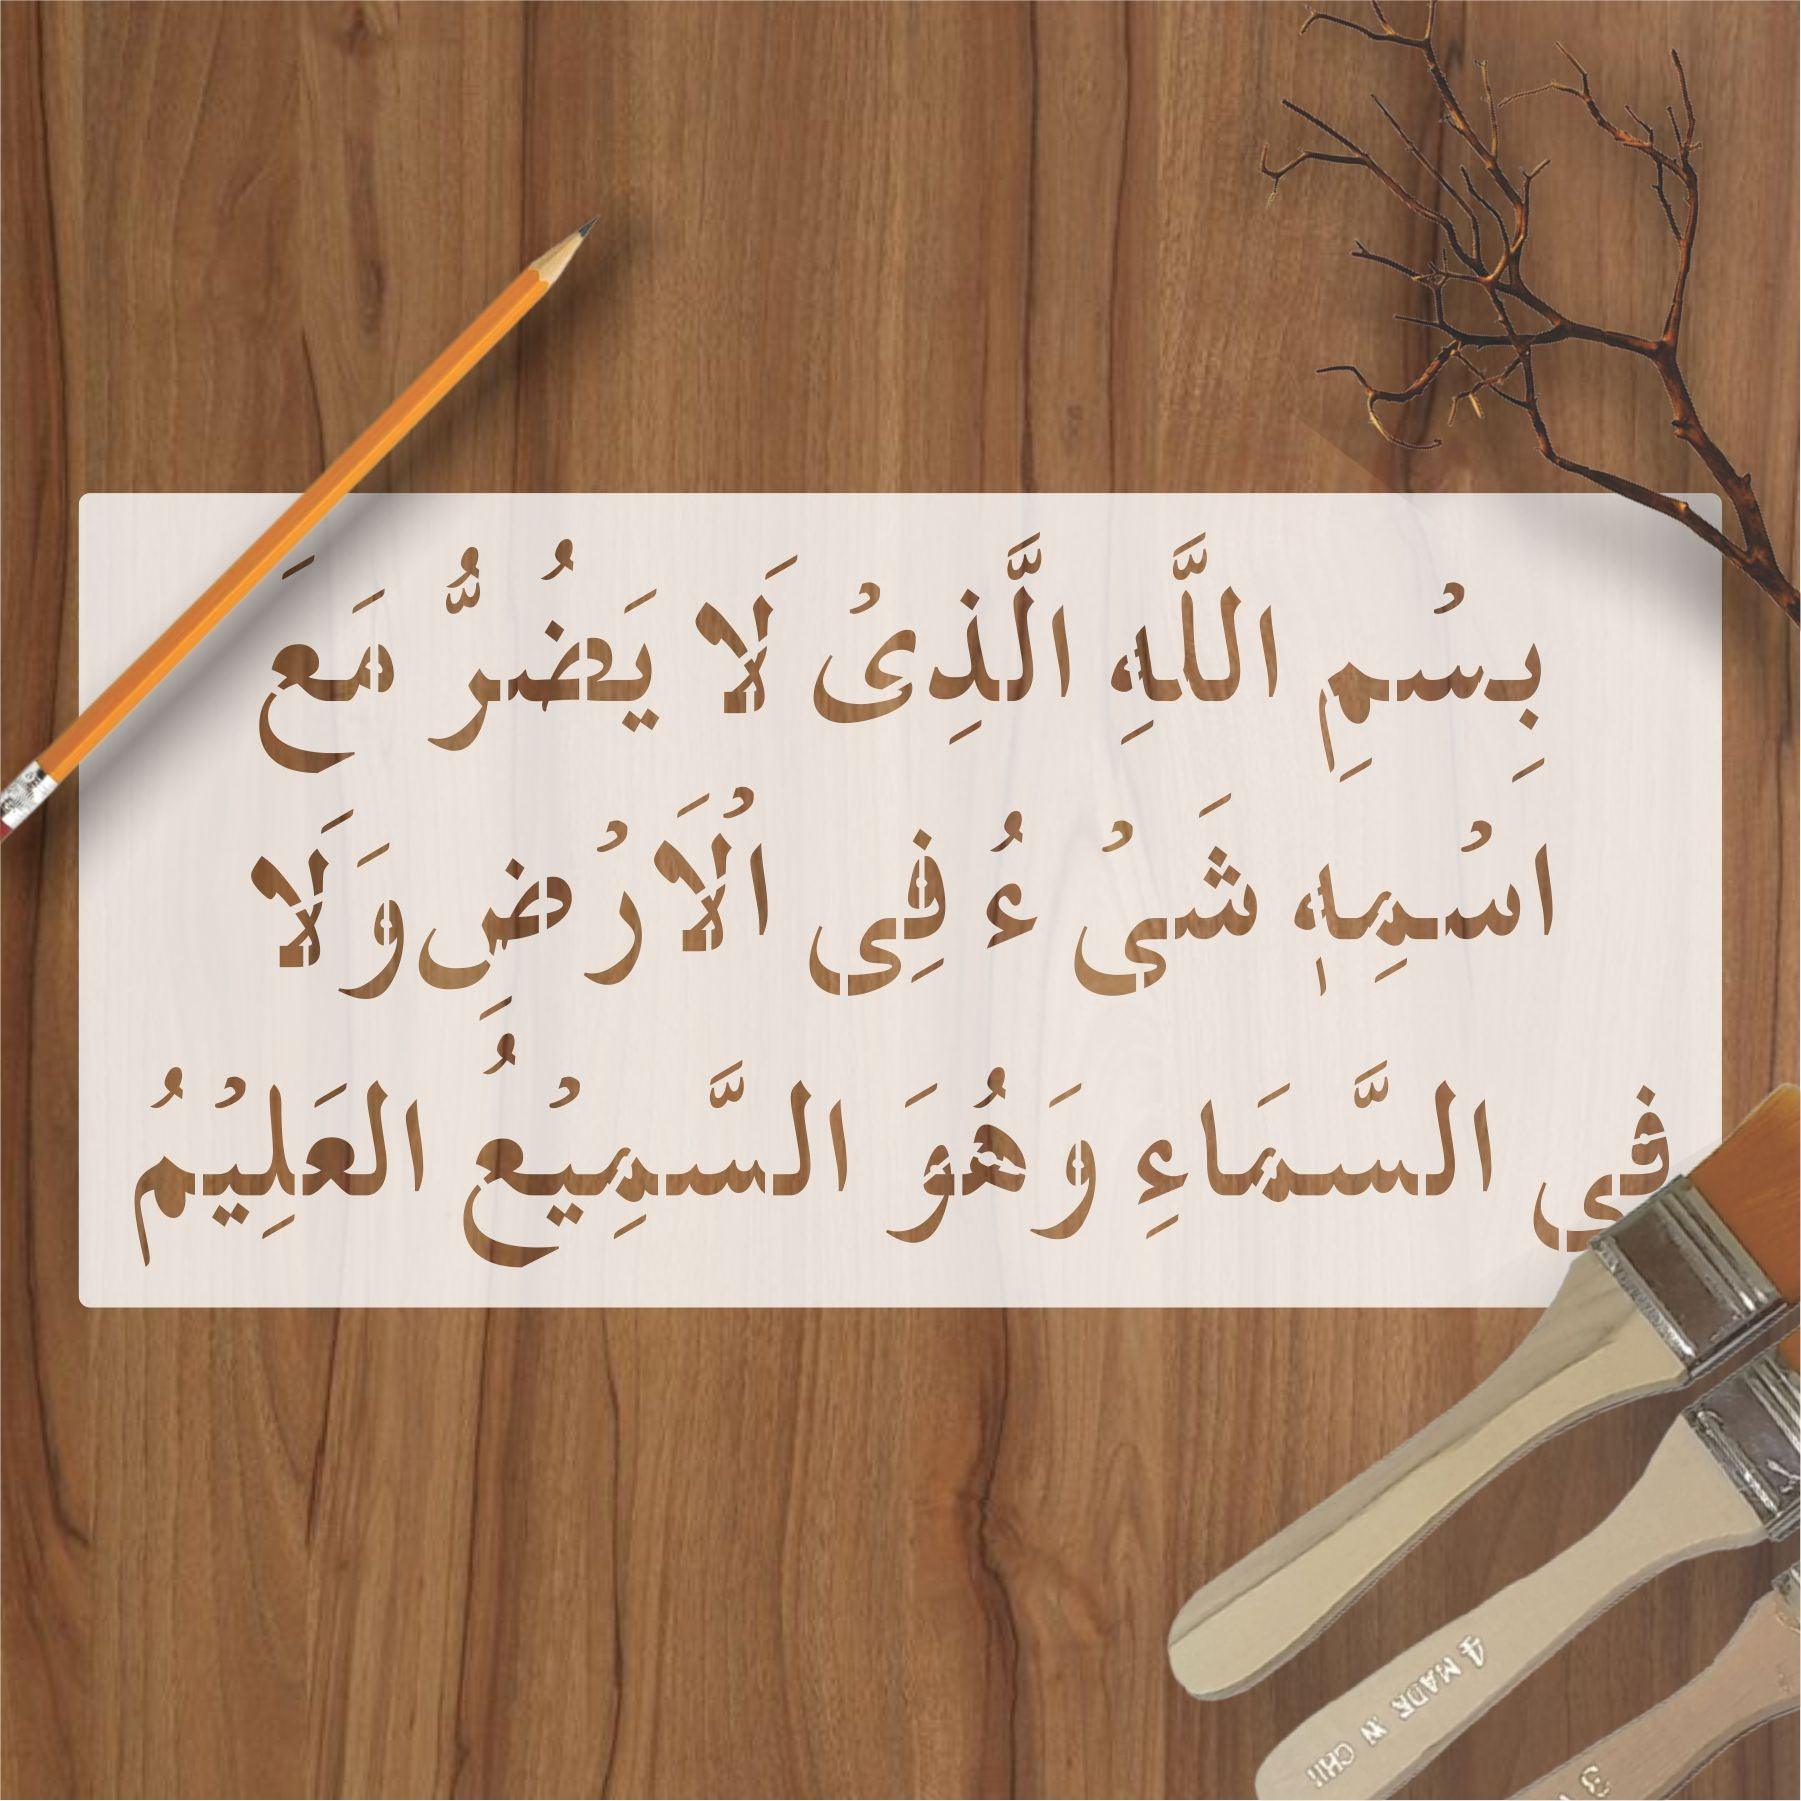 بِسْمِ اللَّهِ الَّذِىْ لَا يَضُرُّ مَعَ
اسْمِهٖ شَىْ ءُ فِى الْاَرْضِ وَلَا
فى السَّمَاءِ وَهُوَ السَّمِيْعُ العَلِيْمُ
4 MADE IN CHI
3